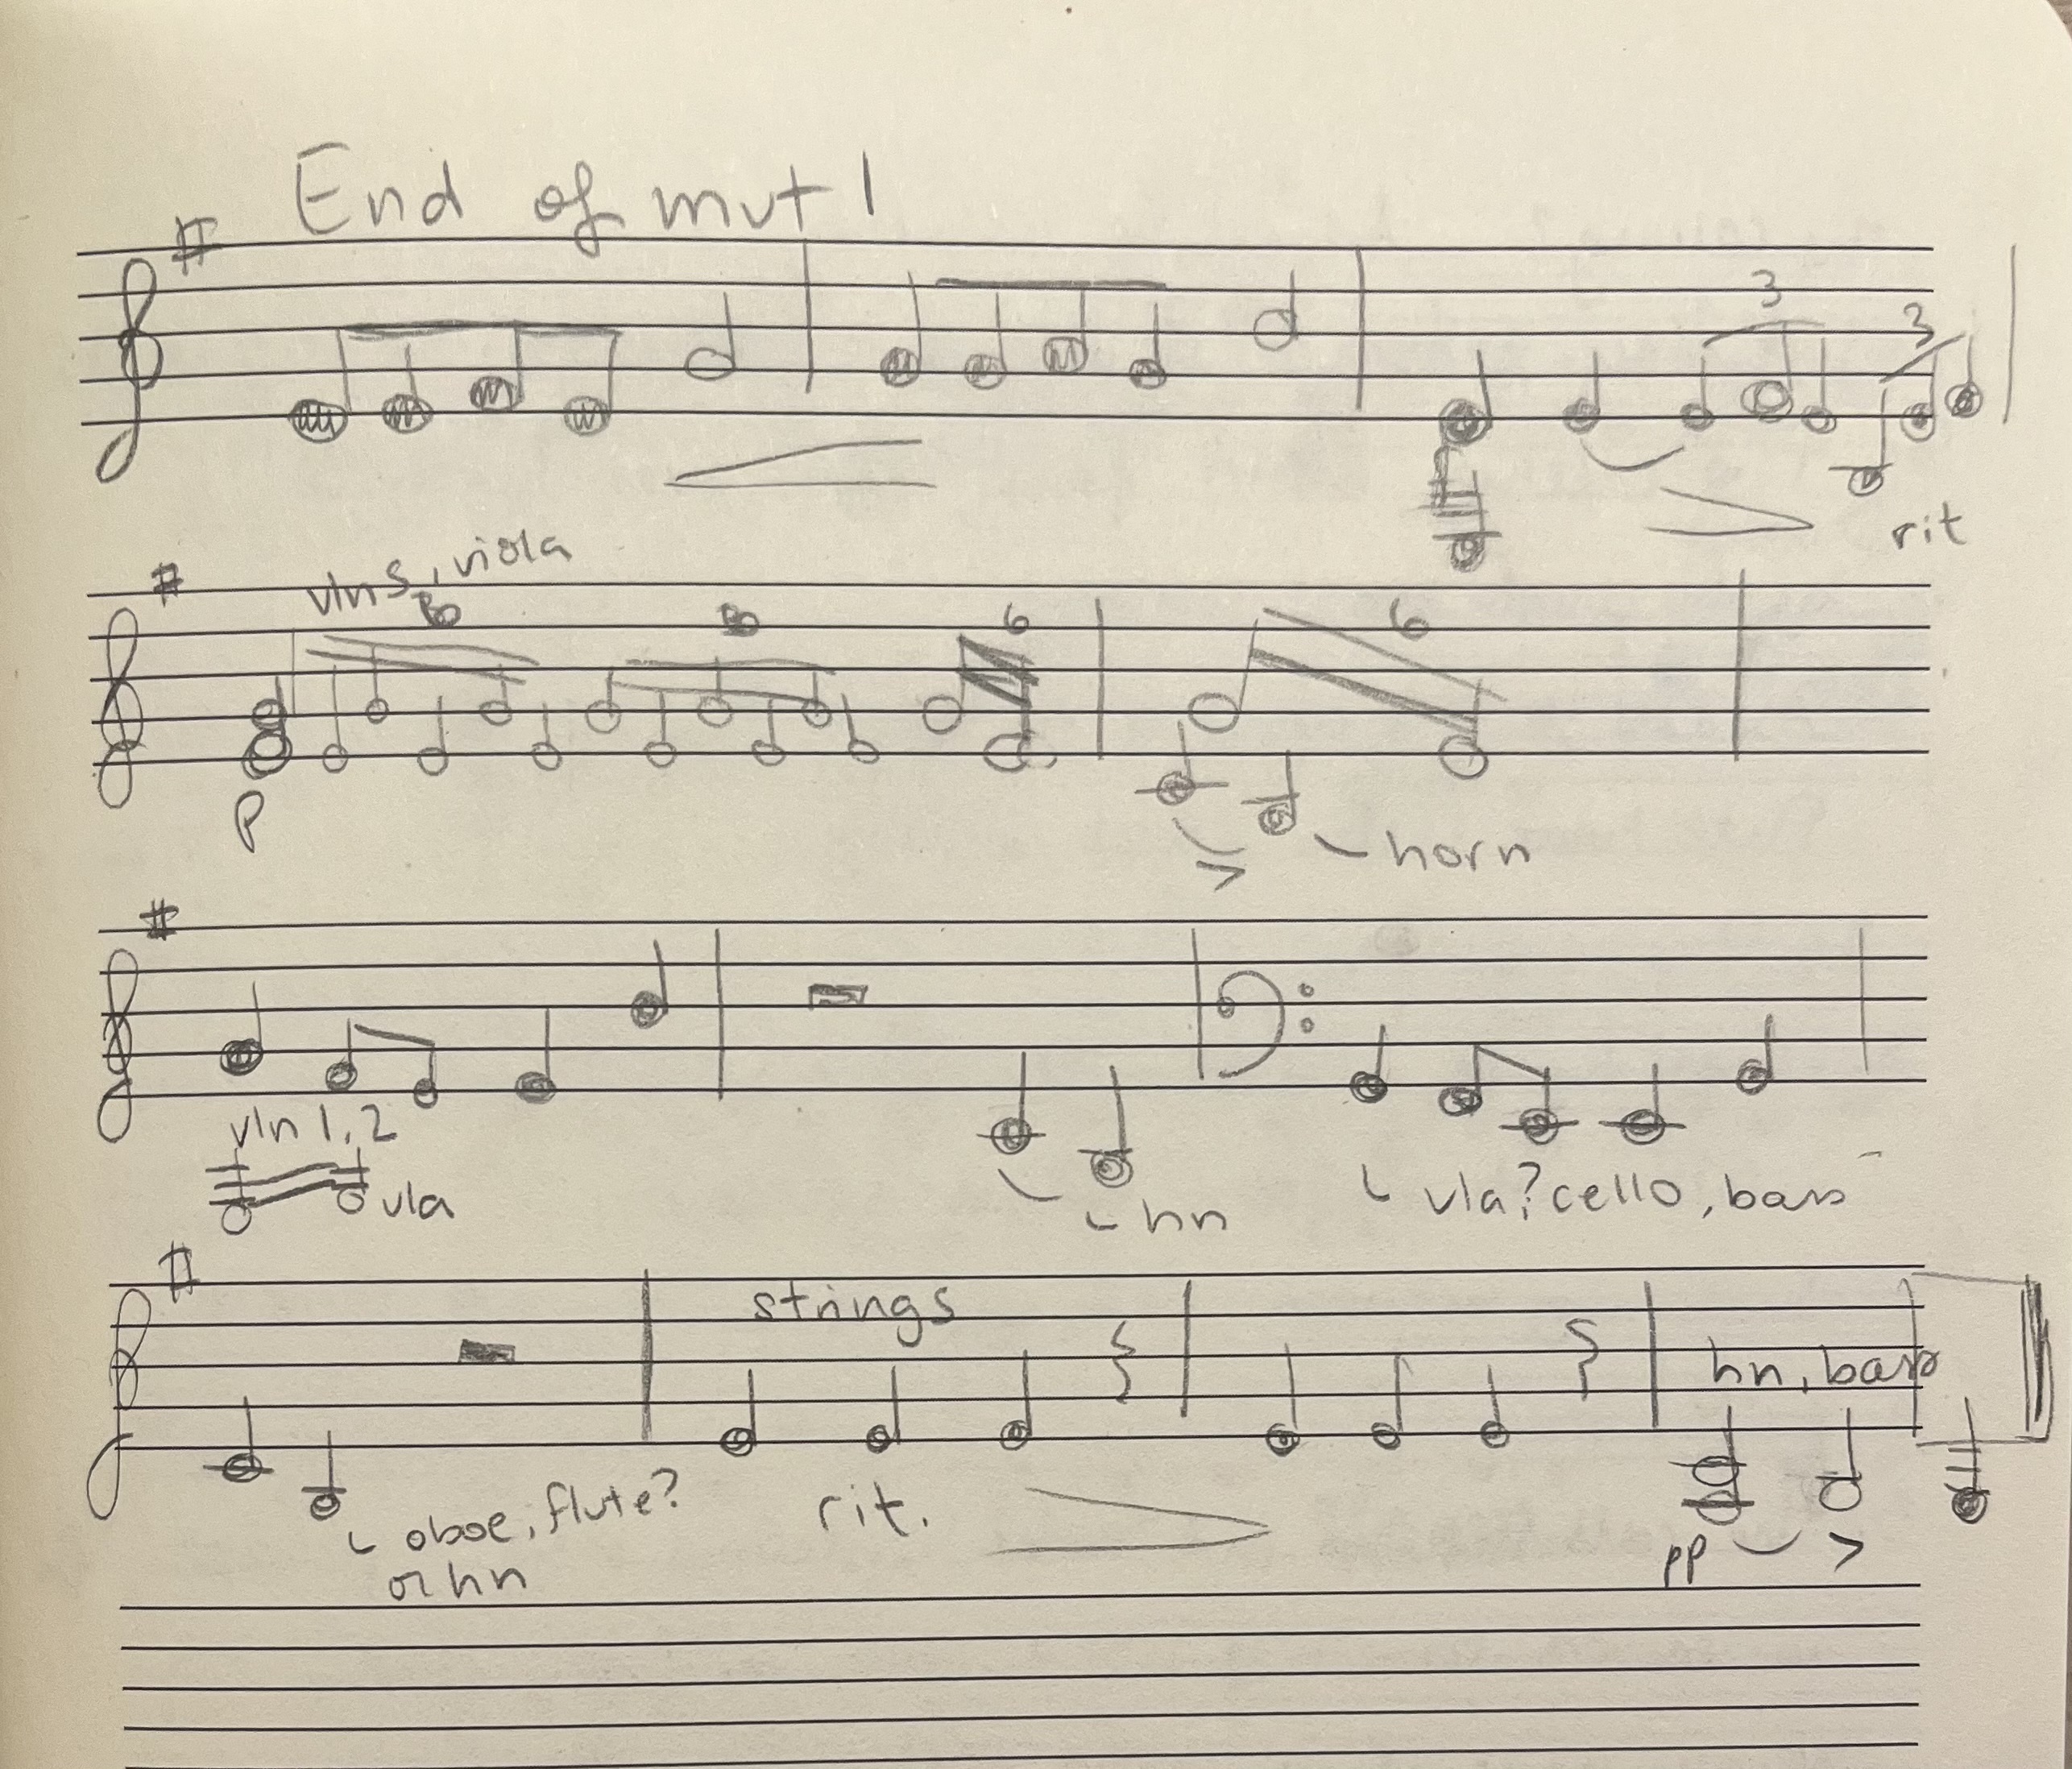 End of mvt 1
3
3
rit
vlns, viola
6
6
6
6
p
horn
vln 1, 2
vla
hn
vla? cello, bass
strings
hn, bass
oboe, flute?
or hn
rit.
pp